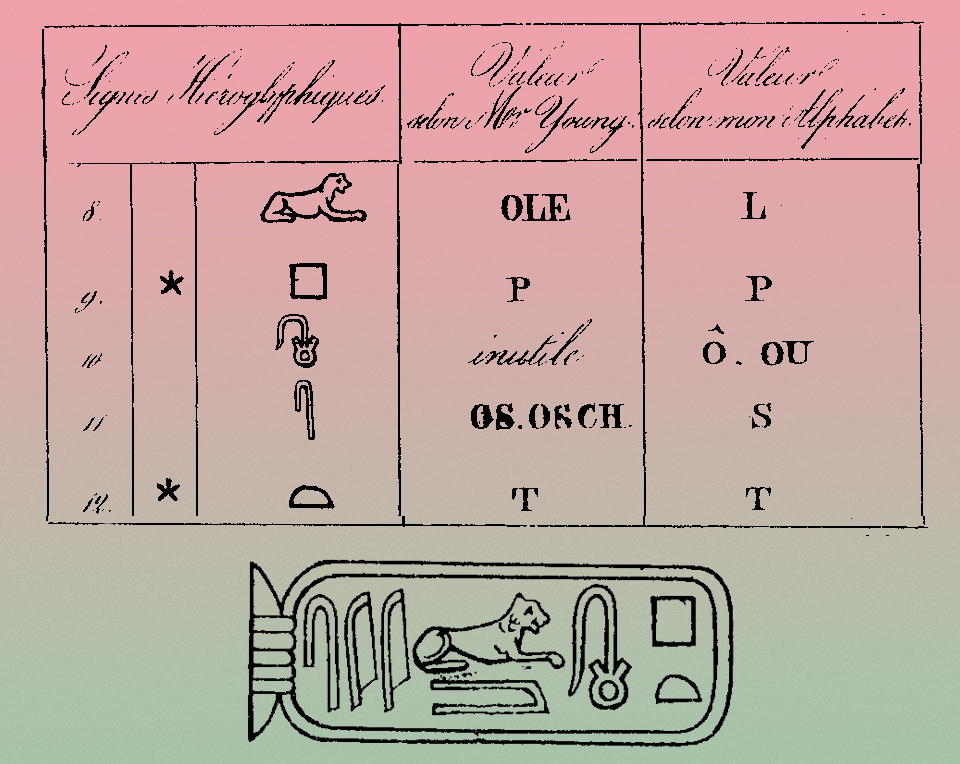 Signes Hiéroglyphiques.
Valeur
selon Mr Young.
Valeur
selon mon Alphabet.
8. OLE L
9. * P P
10 inutile Ô. OU
11 OS. OSCH. S
12. * T T